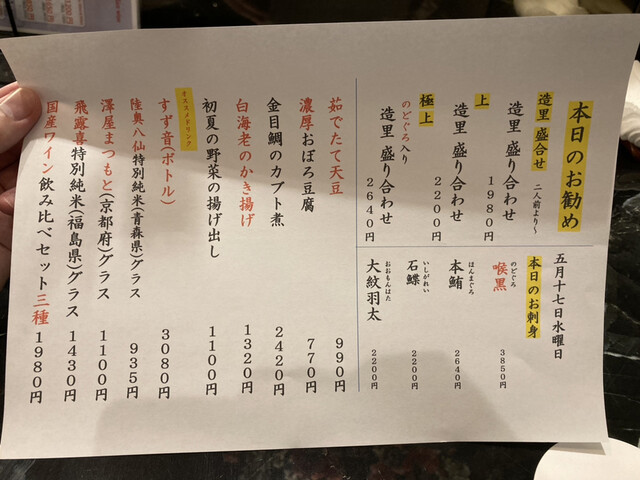 本日のお勧め
造里 盛合せ 二人前より～
造里 盛り合わせ 1980円
上
造里 盛り合わせ 2200円
極上
のどぐろ入り
造里 盛り合わせ 2640円
五月十七日水曜日
本日のお刺身
のどぐろ
喉黒 3850円
ほんまぐろ
本鮪 2640円
いしがれい
石鰈 2200円
おおもんはた
大紋羽太 2200円
茹でたて天豆 990円
濃厚おぼろ豆腐 770円
金目鯛のカブト煮 2420円
白海老のかき揚げ 1320円
初夏の野菜の揚げ出し 1100円
オススメドリンク
すず音(ボトル) 3080円
陸奥八仙特別純米(青森県)グラス 935円
澤屋まつもと(京都府)グラス 1100円
飛露喜特別純米(福島県)グラス 1430円
国産ワイン飲み比べセット三種 1980円